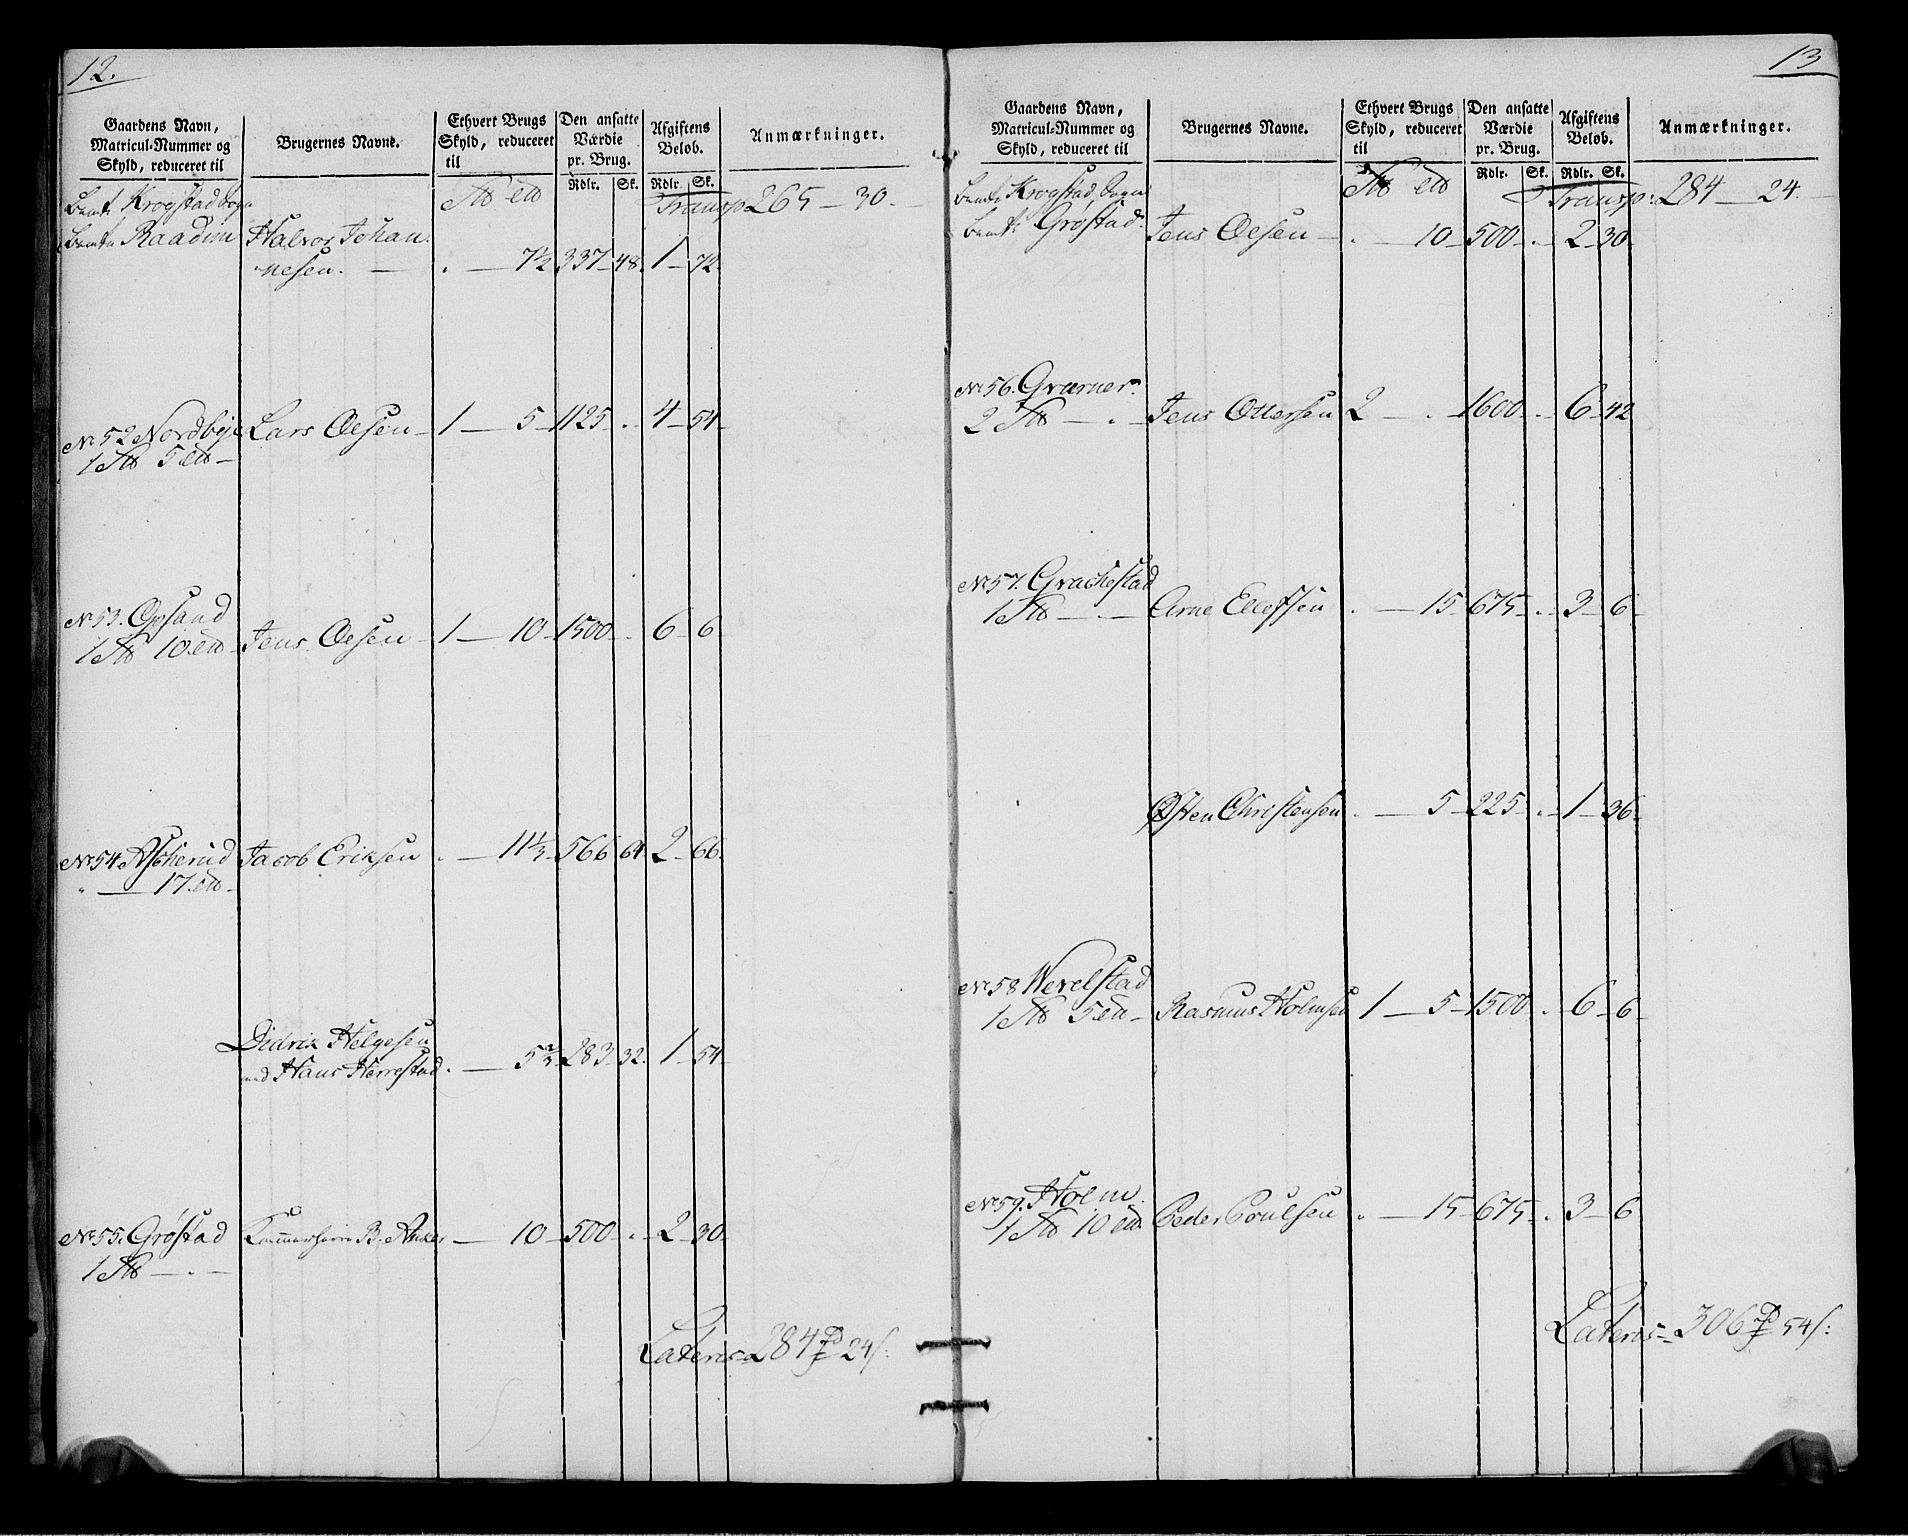 12.
Gaardens Navn, Matricul-Nummer og Skyld, reduceret til | Brugernes Navne. | Ethvert Brugs Skyld, reduceret til | Den ansatte Værdie pr. Brug. Rdlr. Sk. | Afgiftens Beløb. Rdlr. Sk. | Anmærkninger.
Bemt. Krogstad Sogn
Transp 265 — 30.
Bemte Raadim Halvor Johan
nesen. — . — 7½ 337 48. 1 — 72.
No 52 Nordbye Lars Olsen — 1 — 5 — 1125 — . 4 — 54 —
1 5
No 53. Opsand
1 10 Jens Olsen — 1 — 10 — 1500 — . 6 — 6 —
No 54 Ascherud Jacob Eriksen . — 11⅓ 566 64 2 — 66.
" — 17
Didrik Helgesen
med Hans Herrestad . — 5⅔ 283 32. 1 — 54 —
No 55. Grøstad Kammerherre B. Anker — 10 — 500 — . 2 — 30 —
1 — . —
Lateris 284 24
13
Gaardens Navn, Matricul-Nummer og Skyld, reduceret til | Brugernes Navne. | Ethvert Brugs Skyld, reduceret til | Den ansatte Værdie pr. Brug. Rdlr. Sk. | Afgiftens Beløb. Rdlr. Sk. | Anmærkninger.
Bemte Krogstad Sogn
Transp: 284 — 24.
Bemte Grøstad. Jens Olsen — . — 10 — 500 — . — 2 — 30 —
No 56. Gværner
2 — . — Jens Ottersen 2 — . — 1600 — . 6 — 42
No 57. Grachestad
1 — . — Arne Ellefsen . — 15 — 675 — . 3 — 6 —
Østen Christensen . — 5 — 225 — . — 1 — 36 —
No 58 Werelstad
1 5 — Rasmus Holmsen 1 — 5 — 1500 . 6 — 6 —
No 59. Holm
1 10 Peder Poulsen . — 15 — 675 — . 3 — 6
Lateris — 306 54